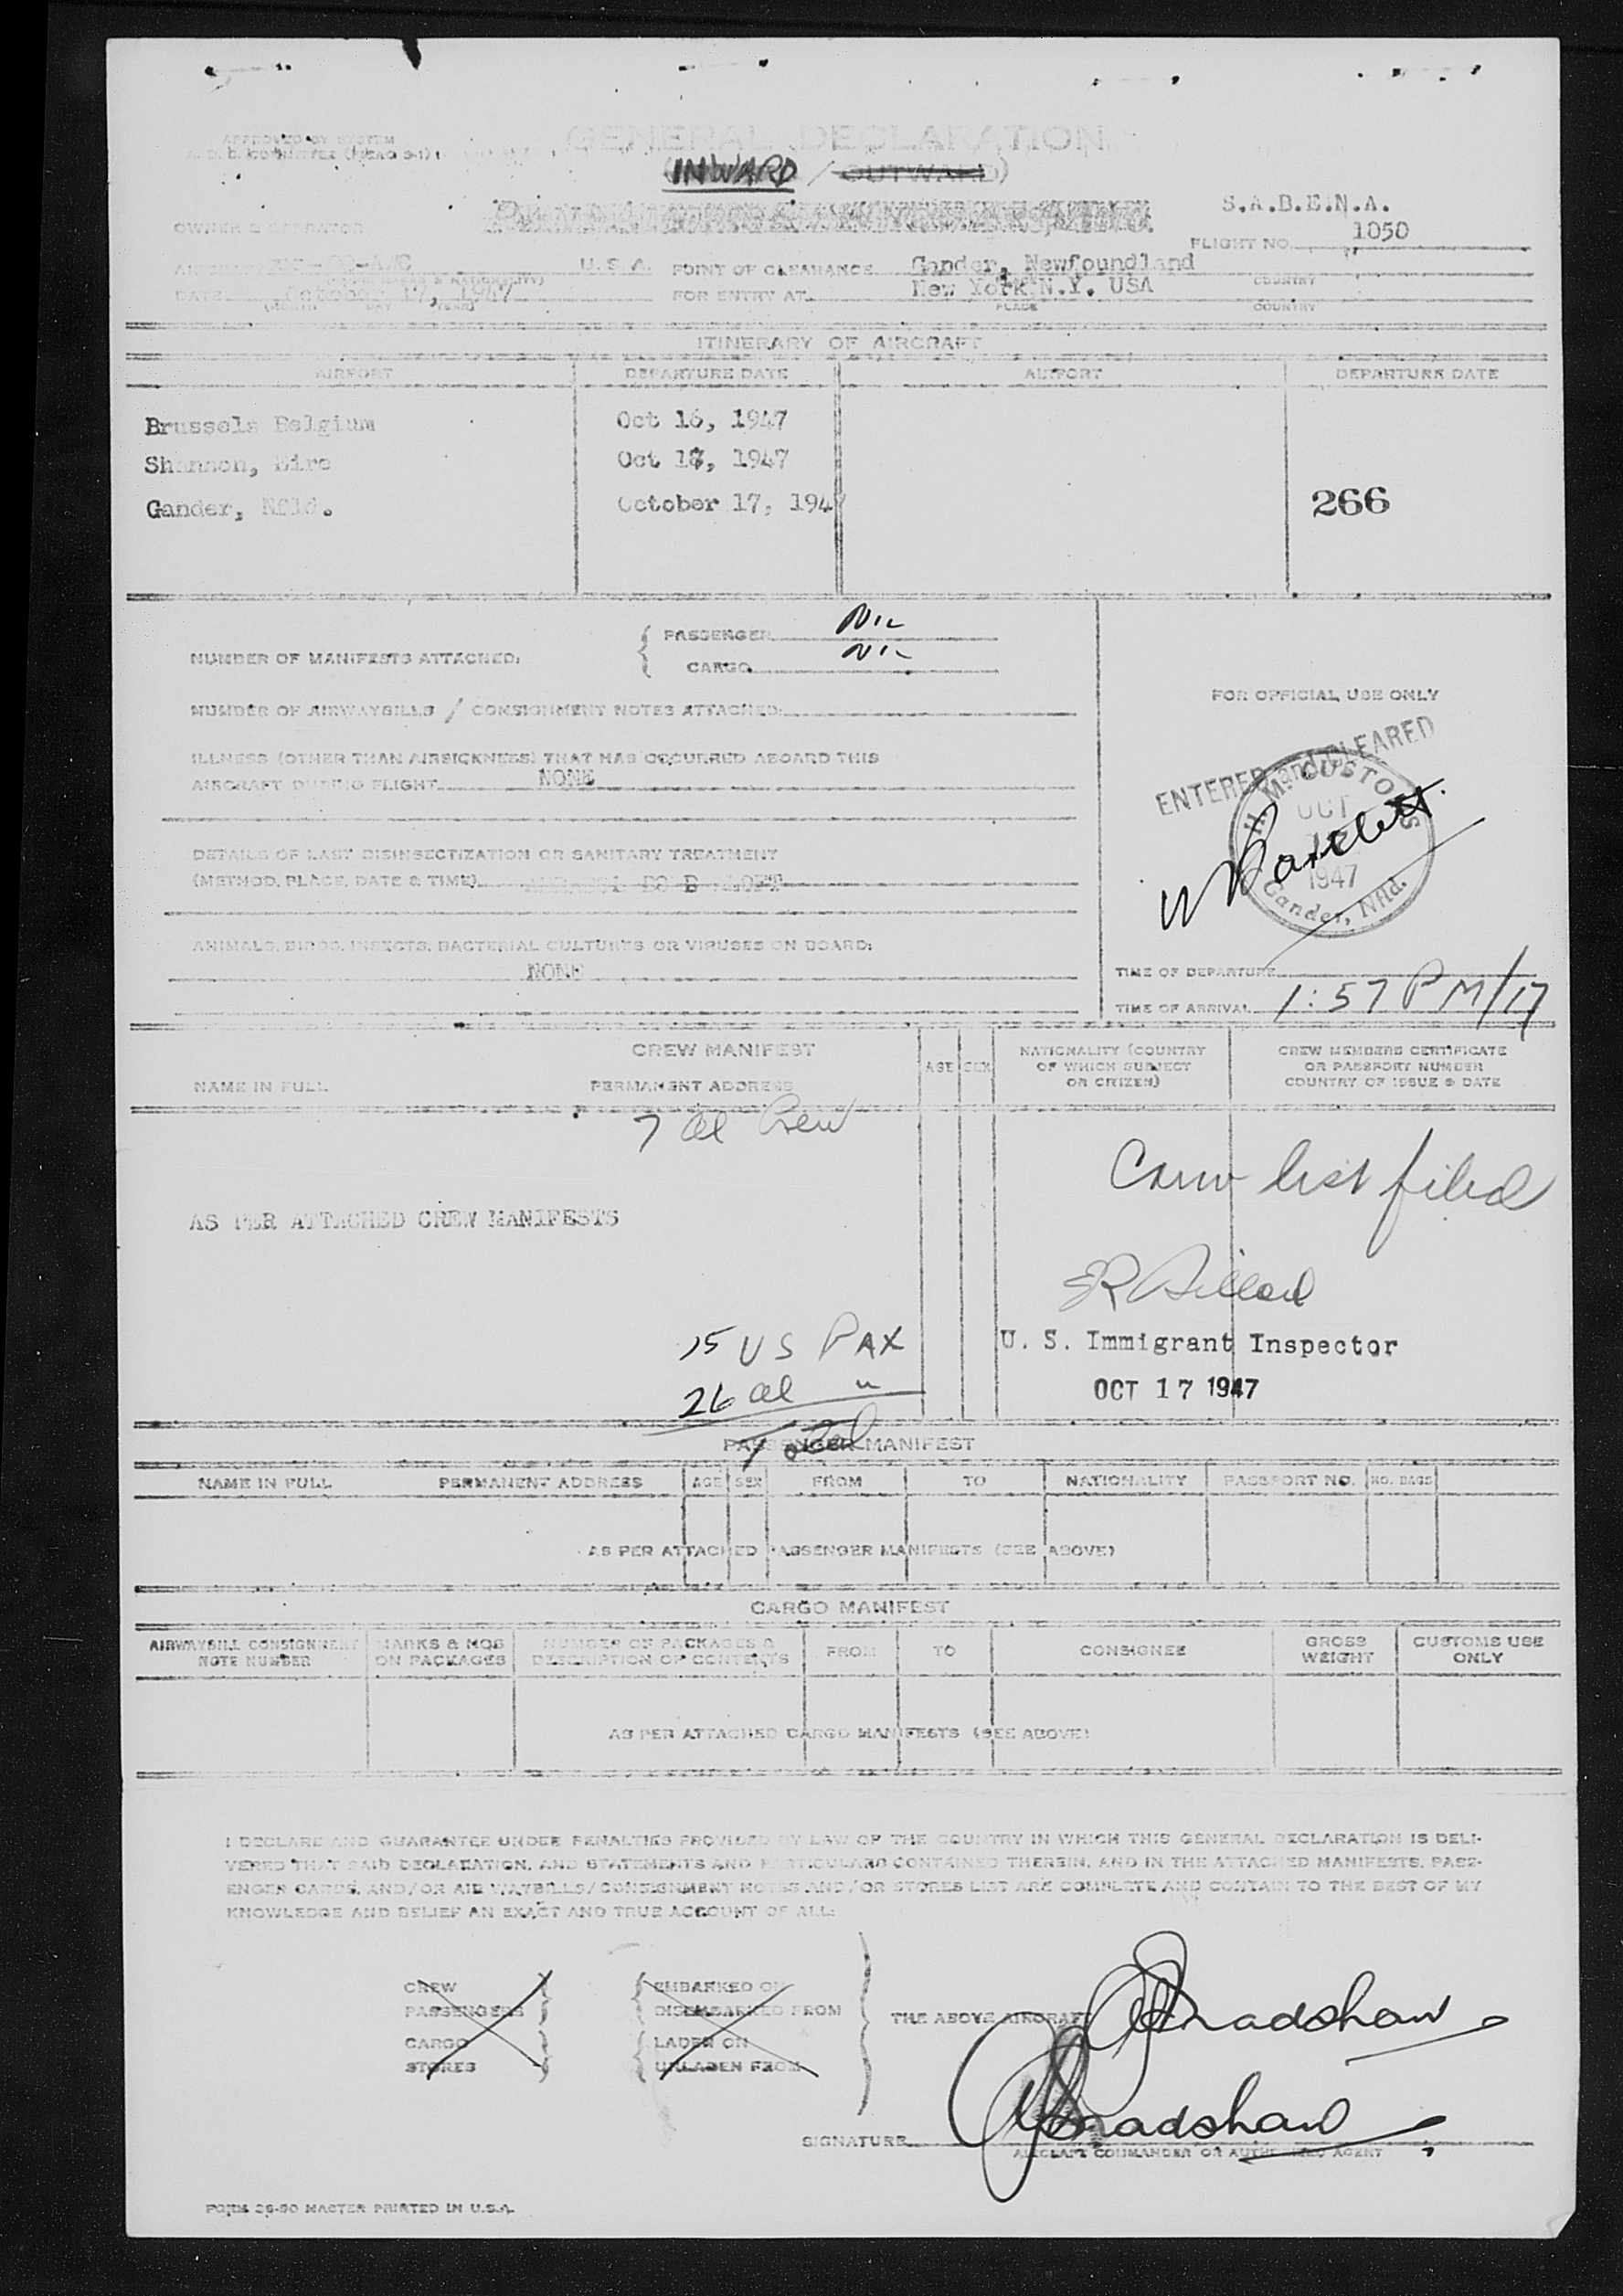 APPROVED BY SYSTEM
GENERAL DECLARATION
(INWARD / OUTWARD)
S.A.B.E.N.A.
OWNER & OPERATOR
FLIGHT NO. 1050
U.S.A. POINT OF CLEARANCE Gander, Newfoundland
COUNTRY
DATE October 17, 1947 FOR ENTRY AT New York N.Y. USA
(MONTH DAY YEAR) PLACE COUNTRY
ITINERARY OF AIRCRAFT
AIRPORT DEPARTURE DATE AIRPORT DEPARTURE DATE
Brussels Belgium Oct 16, 1947
Shannon, Eire Oct 1, 1947
Gander, Nfld. October 17, 1947 266
PASSENGER Nil
NUMBER OF MANIFESTS ATTACHED:
CARGO Nil
FOR OFFICIAL USE ONLY
NUMBER OF AIRWAYBILLS / CONSIGNMENT NOTES ATTACHED:
ILLNESS (OTHER THAN AIRSICKNESS) THAT HAS OCCURRED ABOARD THIS
AIRCRAFT DURING FLIGHT NONE
ENTERED and CLEARED
H. M. CUSTOMS
OCT
1947
Gander, Nfld.
W Bartlett
DETAILS OF LAST DISINSECTIZATION OR SANITARY TREATMENT
(METHOD, PLACE, DATE & TIME)
ANIMALS, BIRDS, INSECTS, BACTERIAL CULTURES OR VIRUSES ON BOARD:
NONE
TIME OF DEPARTURE
TIME OF ARRIVAL 1:57 PM/17
CREW MANIFEST
NAME IN FULL PERMANENT ADDRESS AGE SEX NATIONALITY (COUNTRY OF WHICH SUBJECT OR CITIZEN) CREW MEMBERS CERTIFICATE OR PASSPORT NUMBER COUNTRY OF ISSUE & DATE
7 al Crew
Crew list filed
AS PER ATTACHED CREW MANIFESTS
15 US PAX
U. S. Immigrant Inspector
26 al "
OCT 17 1947
Total
PASSENGER MANIFEST
NAME IN FULL PERMANENT ADDRESS AGE SEX FROM TO NATIONALITY PASSPORT NO. NO. BAGS
AS PER ATTACHED PASSENGER MANIFESTS (SEE ABOVE)
CARGO MANIFEST
AIRWAYBILL CONSIGNMENT NOTE NUMBER MARKS & NOS ON PACKAGES NUMBER OF PACKAGES & DESCRIPTION OF CONTENTS FROM TO CONSIGNEE GROSS WEIGHT CUSTOMS USE ONLY
AS PER ATTACHED CARGO MANIFESTS (SEE ABOVE)
I DECLARE AND GUARANTEE UNDER PENALTIES PROVIDED BY LAW OF THE COUNTRY IN WHICH THIS GENERAL DECLARATION IS DELI-
VERED THAT SAID DECLARATION, AND STATEMENTS AND PARTICULARS CONTAINED THEREIN, AND IN THE ATTACHED MANIFESTS, PASS-
ENGER CARDS, AND/OR AIR WAYBILLS/CONSIGNMENT NOTES AND/OR STORES LIST ARE COMPLETE AND CONTAIN TO THE BEST OF MY
KNOWLEDGE AND BELIEF AN EXACT AND TRUE ACCOUNT OF ALL:
CREW EMBARKED ON
PASSENGERS DISEMBARKED FROM
THE ABOVE AIRCRAFT Bradshaw
CARGO LADEN ON
STORES UNLADEN FROM
SIGNATURE Bradshaw
AIRCRAFT COMMANDER OR AUTHORIZED AGENT
FORM 26-90 MASTER PRINTED IN U.S.A.